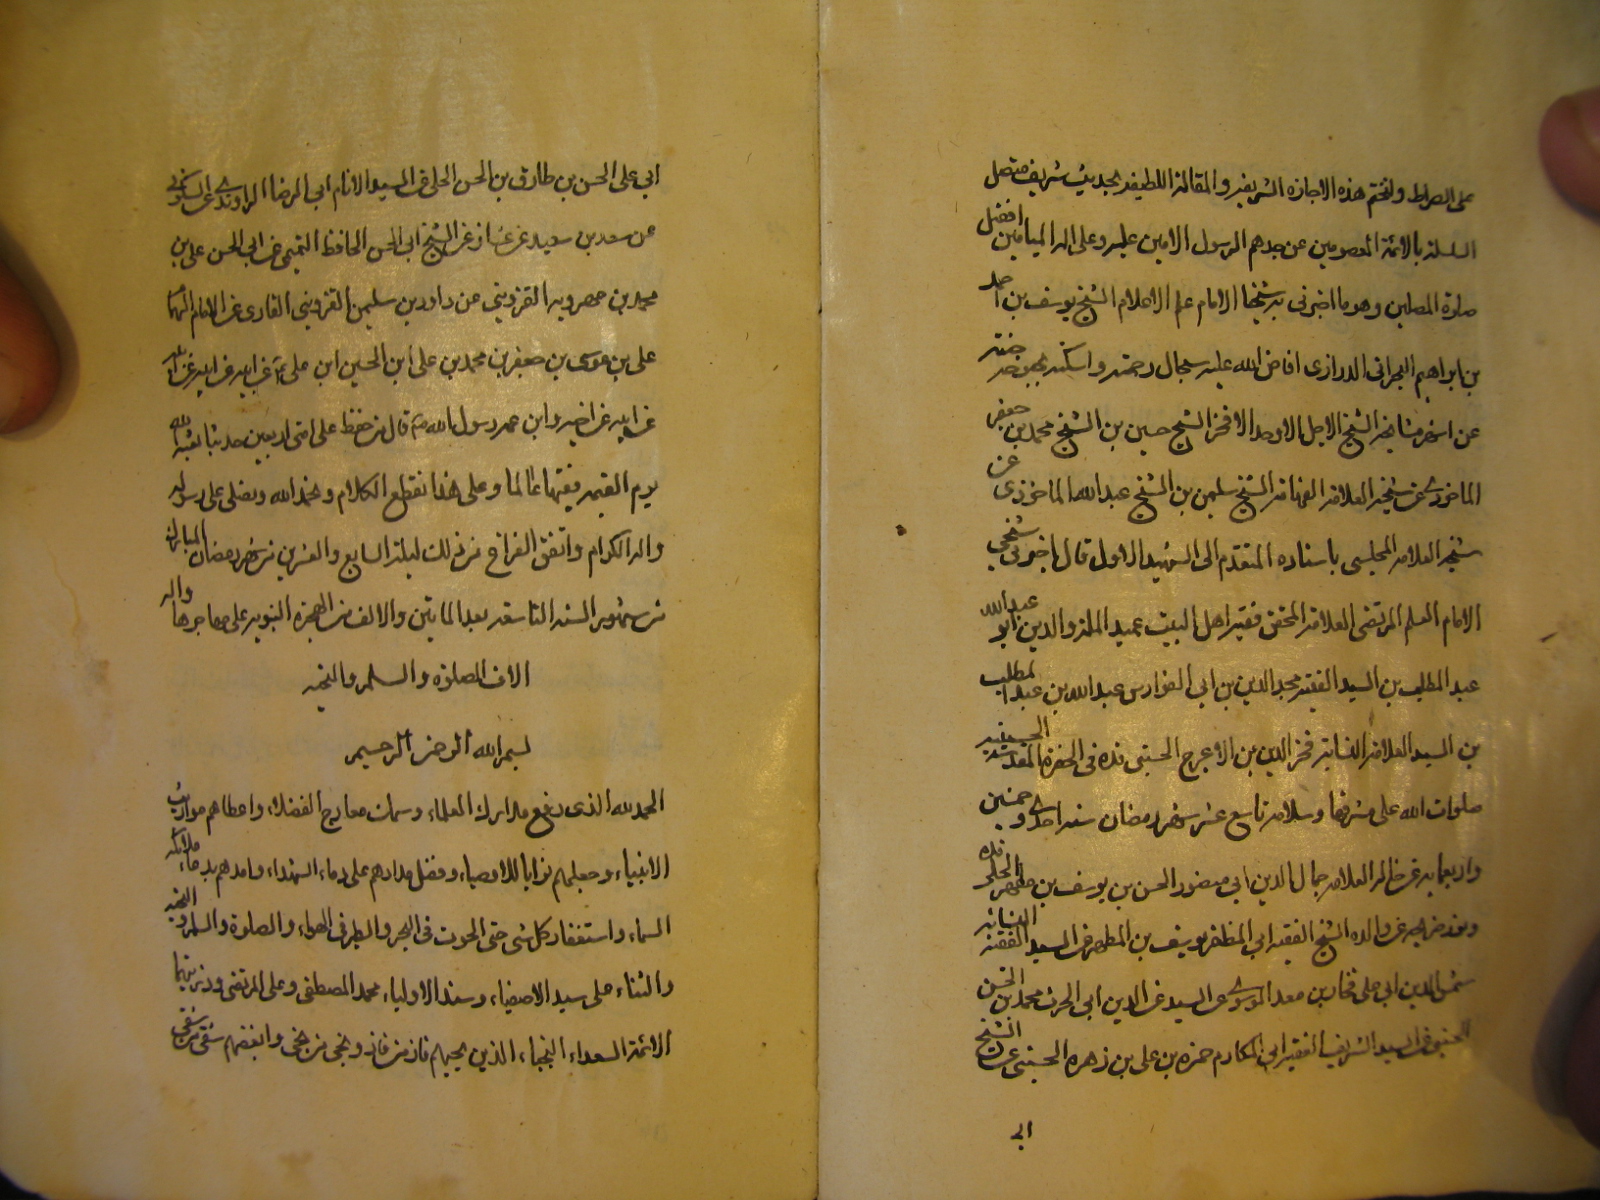 على الصراط ولنختم هذه الاجازة الشريفة والمقالة اللطيفة بحديث شريف متصل
السلسلة بالائمة المعصومين عن جدهم الرسول الامين عليه وعلى اله الميامين افضل
صلوة المصلين وهو ما اخبرنى به شيخنا الامام علم الاعلام الشيخ يوسف بن احمد
بن ابراهيم البحرانى الدرازى افاض الله عليه سجال رحمته واسكنه بحبوحة جنته
عن مشايخه الشيخ الاجل الاوحد الافخر الشيخ حسين بن الشيخ محمد بن جعفر
الماحوزى عن شيخه العلامة الفهامة الشيخ سليمن بن الشيخ عبدالله الماحوزى عن
شيخه العلامة المجلسى باسناده المتقدم الى الشهيد الاول قال اخبرنى شيخى
الامام العلم المرتضى العلامة المحقق فقيه اهل البيت عميد الملة والدين ابو عبدالله
عبد المطلب بن السيد الفقيه مجد الدين بن ابى الفوارس عبدالله بن عبد المطلب
بن السيد العلامة النسابة فخر الدين بن الاعرج الحسينى فى الحضرة المقدسة الحسينية
صلوات الله على مشرفها وسلامه تاسع عشر شهر رمضان سنة احدى وخمسين
عن خاله العلامة جمال الدين ابى منصور الحسن بن يوسف بن مطهر الحلى
عن والده الشيخ الفقيه ابى المظفر يوسف بن المطهر عن السيد الفقيه النسابه
شمس الدين ابى على فخار بن معد الموسوى عن السيد عز الدين ابى الحرث محمد بن الحسن
الحسينى عن السيد الشريف الفقيه ابى المكارم حمزه بن على بن زهره الحسينى عن الشيخ
ابى
ابى على الحسن بن طارق بن الحسن الحلى عن السيد الامام ابى الرضا الراوندى عن السكونى
عن سعد بن سعيد عن عن الشيخ ابى الحسن الحافظ التميمى عن ابى الحسن على بن
محمد بن مهرويه القزوينى عن داود بن سليمن القزوينى الغازى عن الامام الهمام
على بن موسى بن جعفر بن محمد بن على ابن الحسين ابن على عن ابيه عن ابيه عن ابيه
عن ابيه عن اخيه وابن عمه رسول الله ص قال من حفظ على امتى اربعين حديثا بعثه الله
يوم القيمه فقيها عالما وعلى هذا نقطع الكلام ونحمد الله ونصلى على رسوله
واله الكرام واتفق الفراغ من ذلك ليلة السابع والعشرين من شهر رمضان المبارك
من شهور السنه التاسعه بعد الماتين والالف من الهجرة النبويه على مهاجرها واله
الاف الصلوة والسلام والتحيه
بسم الله الرحمن الرحيم
الحمد لله الذى رفع مدارك العلماء وسمك معارج الفضلاء واعطاهم مواريث
الانبياء وجعلهم نوابا للاوصياء وفضل مدادهم على دماء الشهداء وامدهم بدعاء ملائكه
السماء واستغفار كل شى حتى الحوت فى البحر والطير فى الهواء والصلوة والسلام والتحيه
والثناء على سيد الاصفياء وسند الاولياء محمد المصطفى وعلى المرتضى وذريتهما
الائمة السعداء النجباء الذين بحبهم فاز من فاز ونجى من نجى وببغضهم شقى من شقى